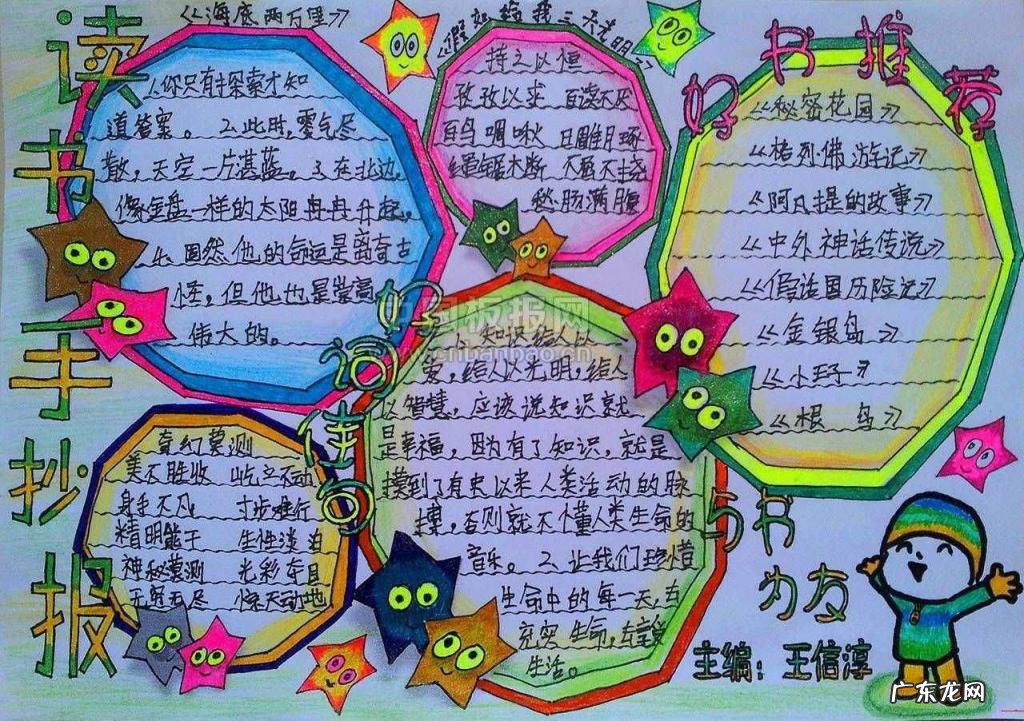 读书手抄报
《海底两万里》
1.你只有探索才知
道答案。2.此时,雾气尽
散,天空一片湛蓝。3.在北边,
像金盘一样的太阳冉冉升起,
4.固然他的命运是离奇古
怪,但他也是崇高,
伟大的。
《假如给我三天光明》
持之以恒
孜孜以求 百读不厌
百鸟啁啾 日雕月琢
不屈不挠
愁肠满腹
好书推荐
《秘密花园》
《格列佛游记》
《阿凡提的故事》
《中外神话传说》
《假话国历险记》
《金银岛》
《小王子》
《根鸟》
好词佳句
奇幻莫测
美不胜收 屹立不动
身手不凡 寸步难行
精明能干 生性淡泊
神秘莫测 光彩夺目
无穷无尽 惊天动地
1.知识给人以
爱,给人以光明,给人
以智慧,应该说知识就
是幸福,因为有了知识,就是
摸到了有史以来人类活动的脉
搏,否则就不懂人类生命的
音乐。2.让我们珍惜
生命中的每一天,去
充实生命,去享受
生活。
与书
为友
主编:王信淳
板报网
www.cnbanbao.cn
广东龙网